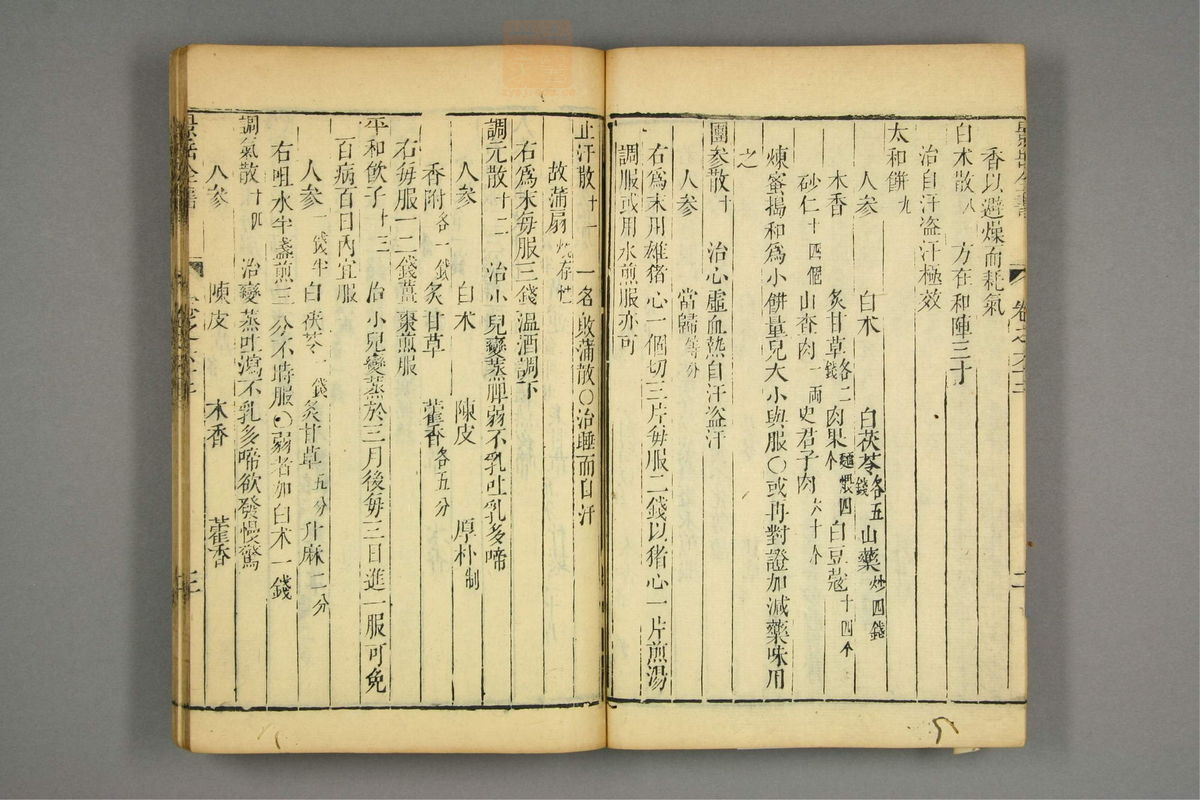 景岳全書 卷之六十二 二
香以避燥而耗氣
白朮散八 方在和陣三十
治自汗盜汗極效
太和餅九
人參 白朮 白茯苓各五錢 山藥炒四錢
木香 炙甘草各二錢 肉果麵煨四个 白豆蔻十四个
砂仁十四個 山查肉一両 史君子肉六十个
煉蜜搗和爲小餅量兒大小與服〇或再對證加減藥味用
之
團參散十 治心虛血熱自汗盜汗
人參 當歸等分
右爲末用雄猪心一個切三片每服二錢以猪心一片煎湯
調服或用水煎服亦可
止汗散十一 一名敗蒲散〇治睡而自汗
故蒲扇燒存性
右爲末每服三錢温酒調下
調元散十二 治小兒變蒸脾弱不乳吐乳多啼
人參 白朮 陳皮 厚朴制
香附各一錢 炙甘草 藿香各五分
右每服一二錢薑棗煎服
平和飲子十三 治小兒變蒸於三月後每三日進一服可免
百病百日內宜服
人參一錢半 白茯苓一錢 炙甘草五分 升麻二分
右咀水半盞煎三分不時服〇弱者加白朮一錢
調氣散十四 治變蒸吐瀉不乳多啼欲發慢驚
人參 陳皮 木香 藿香
景岳全書 三